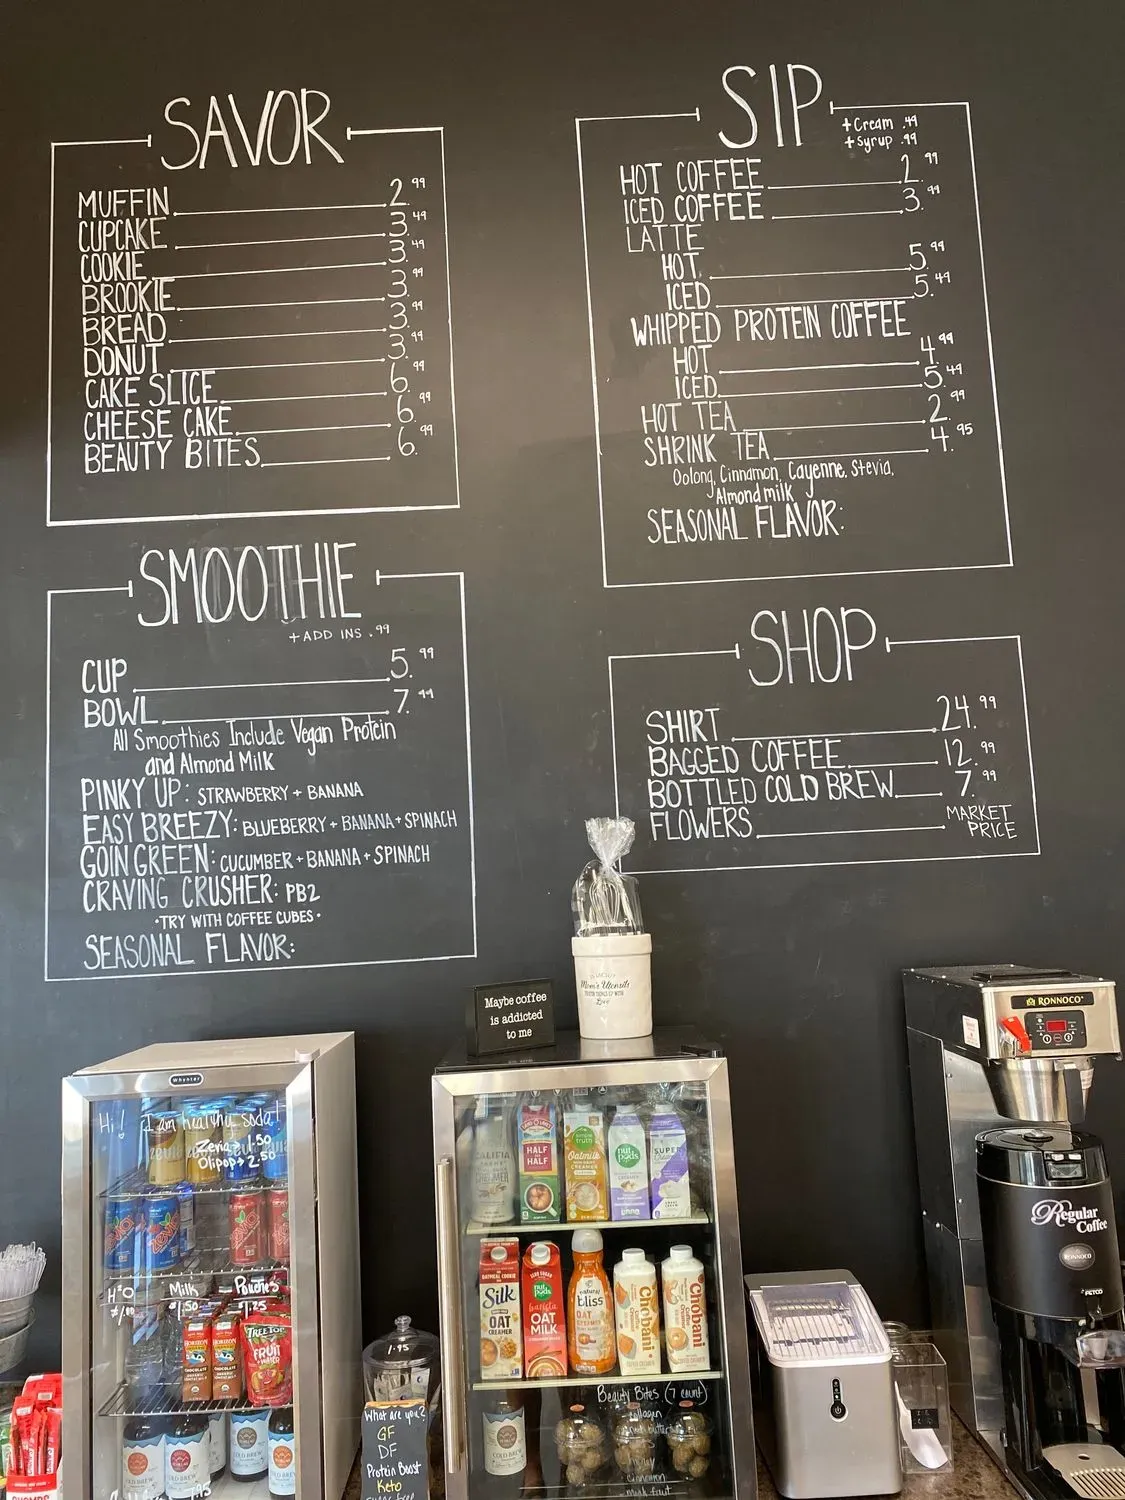 SAVOR
MUFFIN 2.99
CUPCAKE 3.49
COOKIE 3.49
BROOKIE 3.99
BREAD 3.99
DONUT 3.99
CAKE SLICE 6.99
CHEESE CAKE 6.99
BEAUTY BITES 6.99
SIP
+Cream .99
+Syrup .99
HOT COFFEE 2.99
ICED COFFEE 3.99
LATTE
HOT 5.99
ICED 5.49
WHIPPED PROTEIN COFFEE
HOT 4.99
ICED 5.49
HOT TEA 2.99
SHRINK TEA 4.95
Oolong, Cinnamon, Cayenne, Stevia,
Almond milk
SEASONAL FLAVOR:
SMOOTHIE
+ADD INS .99
CUP 5.99
BOWL 7.99
All Smoothies Include Vegan Protein
and Almond Milk
PINKY UP: STRAWBERRY + BANANA
EASY BREEZY: BLUEBERRY + BANANA + SPINACH
GOIN GREEN: CUCUMBER + BANANA + SPINACH
CRAVING CRUSHER: PB2
•TRY WITH COFFEE CUBES•
SEASONAL FLAVOR:
SHOP
SHIRT 24.99
BAGGED COFFEE 12.99
BOTTLED COLD BREW 7.99
FLOWERS MARKET
PRICE
Mom's Utensils
Love
Maybe coffee
is addicted
to me
RONNOCO
Regular
Coffee
RONNOCO
FETCO
Whynter
Hi! I am healthy soda!
Zevia→ 1.50
Olipop→ 2.50
zevia
H²O
1.00
Milk
1.50
Pouches
1.25
HORIZON
HORIZON
TREE TOP
FRUIT
+WATER
COLD BREW
COLD BREW
1.95
What are you?
GF
DF
Protein Boast
Keto
CALIFIA
HALF
HALF
simple
truth
Oatmilk
CREAMER
nut
pods
SUPER
Silk
OAT
CREAMER
nut
pods
barista
OAT
MILK
natural
bliss
OAT
Chobani
Chobani
Beauty Bites (7 count)
collagen
cinnamon